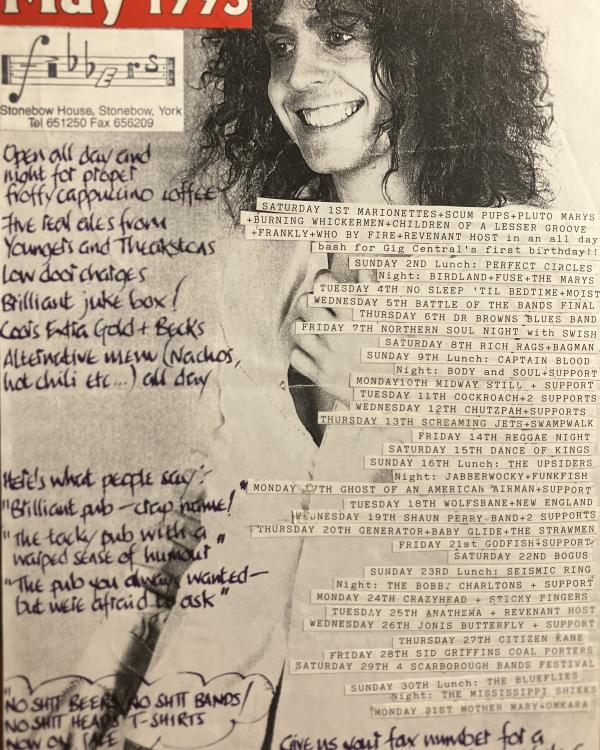 May 1993
fibbers
Stonebow House, Stonebow, York
Tel 651250 Fax 656209
Open all day and
night for proper
frothy cappuccino coffee
Five real ales from
Youngers and Theakstons
Low door charges
Brilliant juke box!
Coors Extra Gold + Becks
Alternative menu (Nachos,
hot chili etc...) all day
Here's what people say:-
"Brilliant pub - crap name!"
"The tacky pub with a
warped sense of humour"
"The pub you always wanted-
but were afraid to ask"
"NO SHIT BEERS/NO SHIT BANDS/
NO SHIT HEADS" T-SHIRTS
NOW ON SALE
SATURDAY 1ST MARIONETTES+SCUM PUPS+PLUTO MARYS
+BURNING WHICKERMEN+CHILDREN OF A LESSER GROOVE
+FRANKLY+WHO BY FIRE+REVENANT HOST in an all day
bash for Gig Central's first birthday!!
SUNDAY 2ND Lunch: PERFECT CIRCLES
Night: BIRDLAND+FUSE+THE MARYS
TUESDAY 4TH NO SLEEP 'TIL BEDTIME+MOIST
WEDNESDAY 5TH BATTLE OF THE BANDS FINAL
THURSDAY 6TH DR BROWNS BLUES BAND
FRIDAY 7TH NORTHERN SOUL NIGHT with SWISH
SATURDAY 8TH RICH RAGS+BAGMAN
SUNDAY 9TH Lunch: CAPTAIN BLOOD
Night: BODY and SOUL+SUPPORT
MONDAY10TH MIDWAY STILL + SUPPORT
TUESDAY 11TH COCKROACH+2 SUPPORTS
WEDNESDAY 12TH CHUTZPAH+SUPPORTS
THURSDAY 13TH SCREAMING JETS+SWAMPWALK
FRIDAY 14TH REGGAE NIGHT
SATURDAY 15TH DANCE OF KINGS
SUNDAY 16TH Lunch: THE UPSIDERS
Night: JABBERWOCKY+FUNKFISH
MONDAY 17TH GHOST OF AN AMERICAN AIRMAN+SUPPORT
TUESDAY 18TH WOLFSBANE+NEW ENGLAND
WEDNESDAY 19TH SHAUN PERRY BAND+2 SUPPORTS
THURSDAY 20TH GENERATOR+BABY GLIDE+THE STRAWMEN
FRIDAY 21st GODFISH+SUPPORT
SATURDAY 22ND BOGUS
SUNDAY 23RD Lunch: SEISMIC RING
Night: THE BOBBY CHARLTONS + SUPPORT
MONDAY 24TH CRAZYHEAD + STICKY FINGERS
TUESDAY 25TH ANATHEMA + REVENANT HOST
WEDNESDAY 26TH JONIS BUTTERFLY + SUPPORT
THURSDAY 27TH CITIZEN KANE
FRIDAY 28TH SID GRIFFINS COAL PORTERS
SATURDAY 29TH 4 SCARBOROUGH BANDS FESTIVAL
SUNDAY 30TH Lunch: THE BLUEFLIES
Night: THE MISSISSIPPI SHIEKS
MONDAY 31ST MOTHER MARY+OMKARA
Give us your fax number for a